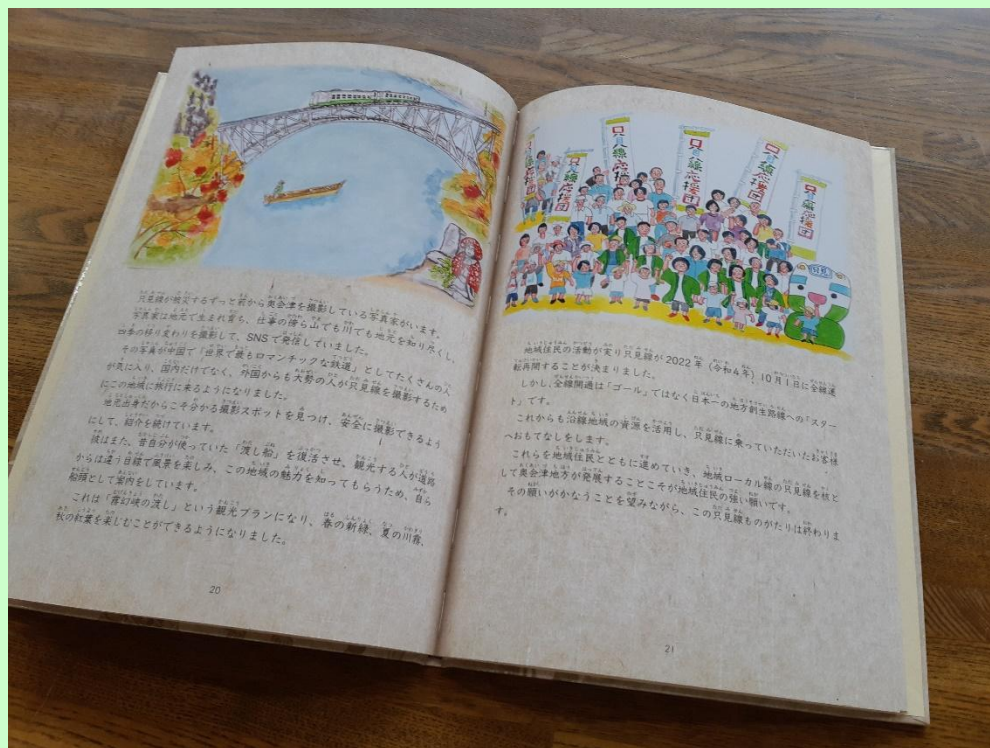 只見線が被災するずっと前から奥会津を撮影している写真家がいます。
写真家は地元で生まれ育ち、仕事の傍ら山でも川でも地元を知り尽くし、
四季の移り変わりを撮影して、SNSで発信していました。
その写真が中国で「世界で最もロマンチックな鉄道」としてたくさんの人
が気に入り、国内だけでなく、外国からも大勢の人が只見線を撮影するため
にこの地域に旅行に来るようになりました。
地元出身だからこそ分かる撮影スポットを見つけ、安全に撮影できるよう
にして、紹介を続けています。
彼はまた、昔自分が使っていた「渡し船」を復活させ、観光する人が道路
からは違う目線で風景を楽しみ、この地域の魅力を知ってもらうため、自ら
船頭として案内をしています。
これは「霧幻峡の渡し」という観光プランになり、春の新緑、夏の川霧、
秋の紅葉を楽しむことができるようになりました。
20
只見線応援団
只見線応援団
只見線応援団
只見線応援団
只見線応援団
只見
地域住民の活動が実り只見線が2022年（令和4年）10月1日に全線運
転再開することが決まりました。
しかし、全線開通は「ゴール」ではなく日本一の地方創生路線への「スター
ト」です。
これからも沿線地域の資源を活用し、只見線に乗っていただいたお客様
へおもてなしをします。
これらを地域住民とともに進めていき、地域ローカル線の只見線を核と
して奥会津地方が発展することこそが地域住民の強い願いです。
その願いがかなうことを望みながら、この只見線ものがたりは終わりま
す。
21